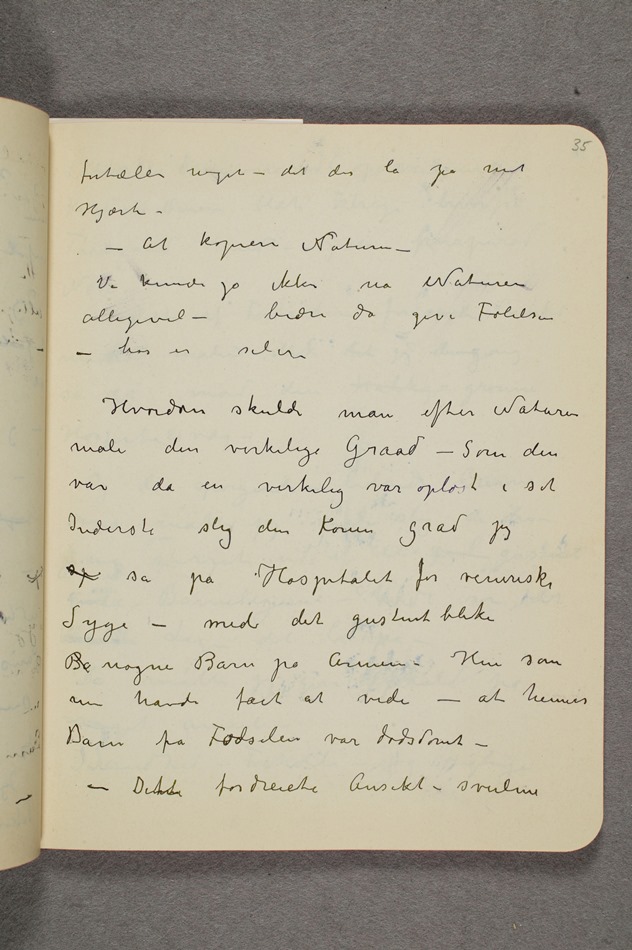 35
fortælle noget – det der la på mit
Hjærte –
– At kopiere Naturen –
Vi kunde jo ikke na Naturen
alligevel – bedre da give Følelsen
– hos en selven
Hvordan skulde man efter Naturen
male den verkelige Graad – Som den
var da en verkelig var opløst i sit
Inderste slig den Konen grad jeg
sa på Hospitalet for veneriske
Syge – med det gustent bleke
nogne Barn på Armen – Hun som
nu havde fået at vide – at hennes
Barn fra Fødselen var dødsdømt –
– Dette fordreiete Ansikt – svulne